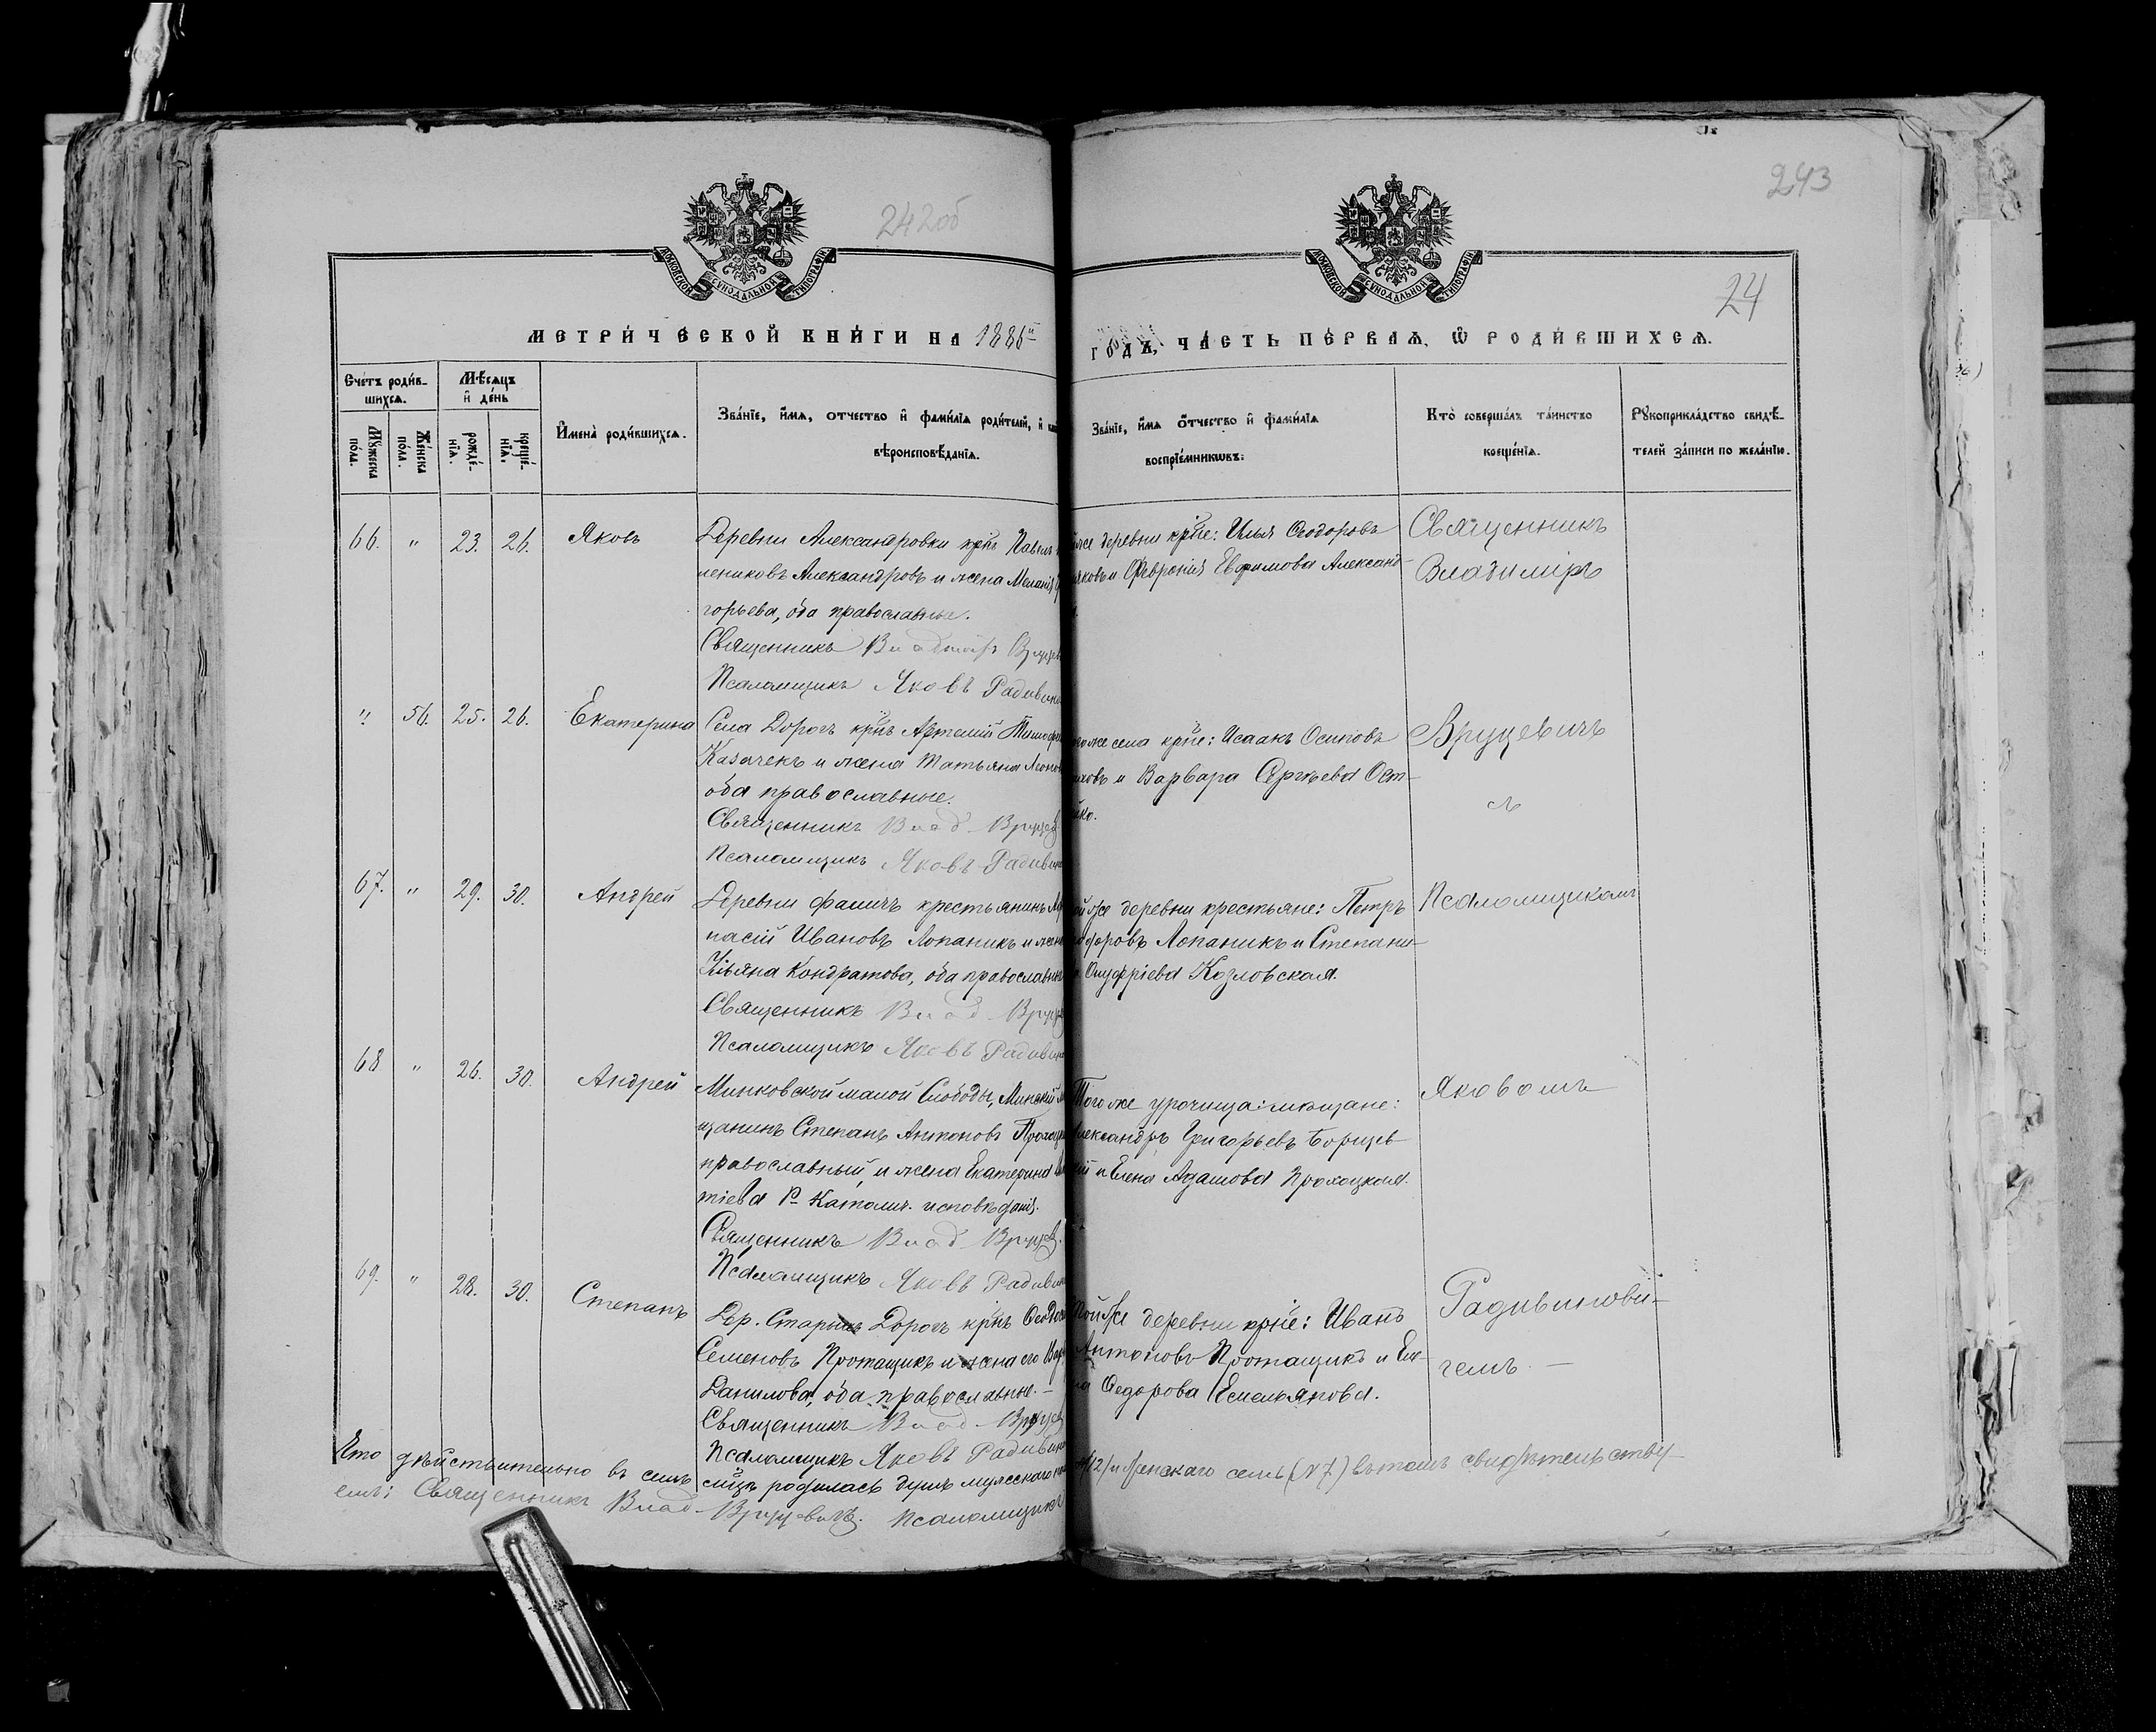 242об
243
24
МОСКОВСКОЙ СѴНОДАЛЬНОЙ ТИПОГРАФІИ
МОСКОВСКОЙ СѴНОДАЛЬНОЙ ТИПОГРАФІИ
МЕТРИ́ЧЕСКОЙ КНИ́ГИ НА 1886й
ГО́ДЪ, ЧА́СТЬ ПЕ́РВАѦ, Ѡ҆ РОДИ́ВШИХСѦ.
Сче́тъ роди́в-
шихсѧ.
Мꙋ́жеска по́ла.
Же́нска по́ла.
Мѣ́сѧцъ
и҆ де́нь
рожде́-
нїѧ.
креще́-
нїѧ.
И҆мена̀ роди́вшихсѧ.
Зва́нїе, и҆́мѧ, о́тчество и҆ фами́лїѧ роди́телей, и҆
вѣроисповѣ́данїѧ.
Зва́нїе, и҆́мѧ о́тчество и҆ фами́лїѧ
воспрїе́мникѡвъ.
Кто̀ соверша́лъ та́инство
креще́нїѧ.
Рꙋкоприкла́дство свидѣ́-
телей за́писи по жела́нїю.
66. " 23. 26. Яковъ
Деревни Александровки крнъ Павелъ
лениковъ Александровъ и жена Меланія
горьева, оба православные.
Священникъ Владиміръ Вруцев
Псаломщикъ Яковъ Радивино
же деревни крне: Илья Ѳеодоровъ
яковъ и Февронія Евфимова Александ-
Священникъ
Владиміръ
" 56. 25. 26. Екатерина
Села Дорогъ крнъ Артемій Тимофе
Казачекъ и жена Татьяна Леонов
оба православные.
Священникъ Влад. Вруцев
Псаломщикъ Яковъ Радивино
гоже села крне: Исаакъ Осиповъ
ховъ и Варвара Сергѣева Ост-
йко.
Вруцевичъ
съ
67. " 29. 30. Андрей
Деревни Фаличъ крестьянинъ
насій Ивановъ Лопаникъ и жена
Ульяна Кондратова, оба православные
Священникъ Влад. Вруцев
Псаломщикъ Яковъ Радивино
ойже деревни крестьяне: Петръ
одоровъ Лопаникъ и Степани-
Онуфріева Козловская.
Псаломщикомъ
68 " 26. 30. Андрей
Минковской малой Слободы, Минскій
щанинъ Степанъ Антоновъ Прохоцк
православный, и жена Екатерина
тіева Р. Католич. исповѣданія.
Священникъ Влад. Вруцев.
Псаломщикъ Яковъ Радивин
Того же урочища: мѣщане:
лександръ Григорьевъ Борщев-
ій и Елена Адамова Прохоцкая.
Яковомъ
69. " 28. 30. Степанъ
Дер. Старыхъ Дорогъ крнъ Ѳеодоръ
Семеновъ Протащикъ и жена его Вар
Данилова, оба православные. –
Священникъ Влад. Вруцев
Псаломщикъ Яковъ Радивин
Тойже деревни крне: Иванъ
Антоновъ Протащикъ и Еле-
на Ѳедорова Емельянова.
Радивинови-
чемъ. –
Что дѣйствительно въ семъ м–цѣ родилось душъ мужескаго
12/ и женскаго семь (№ 7) въ томъ свидѣтельству-
емъ: Священникъ Влад. Вруцевичъ. Псаломщикъ